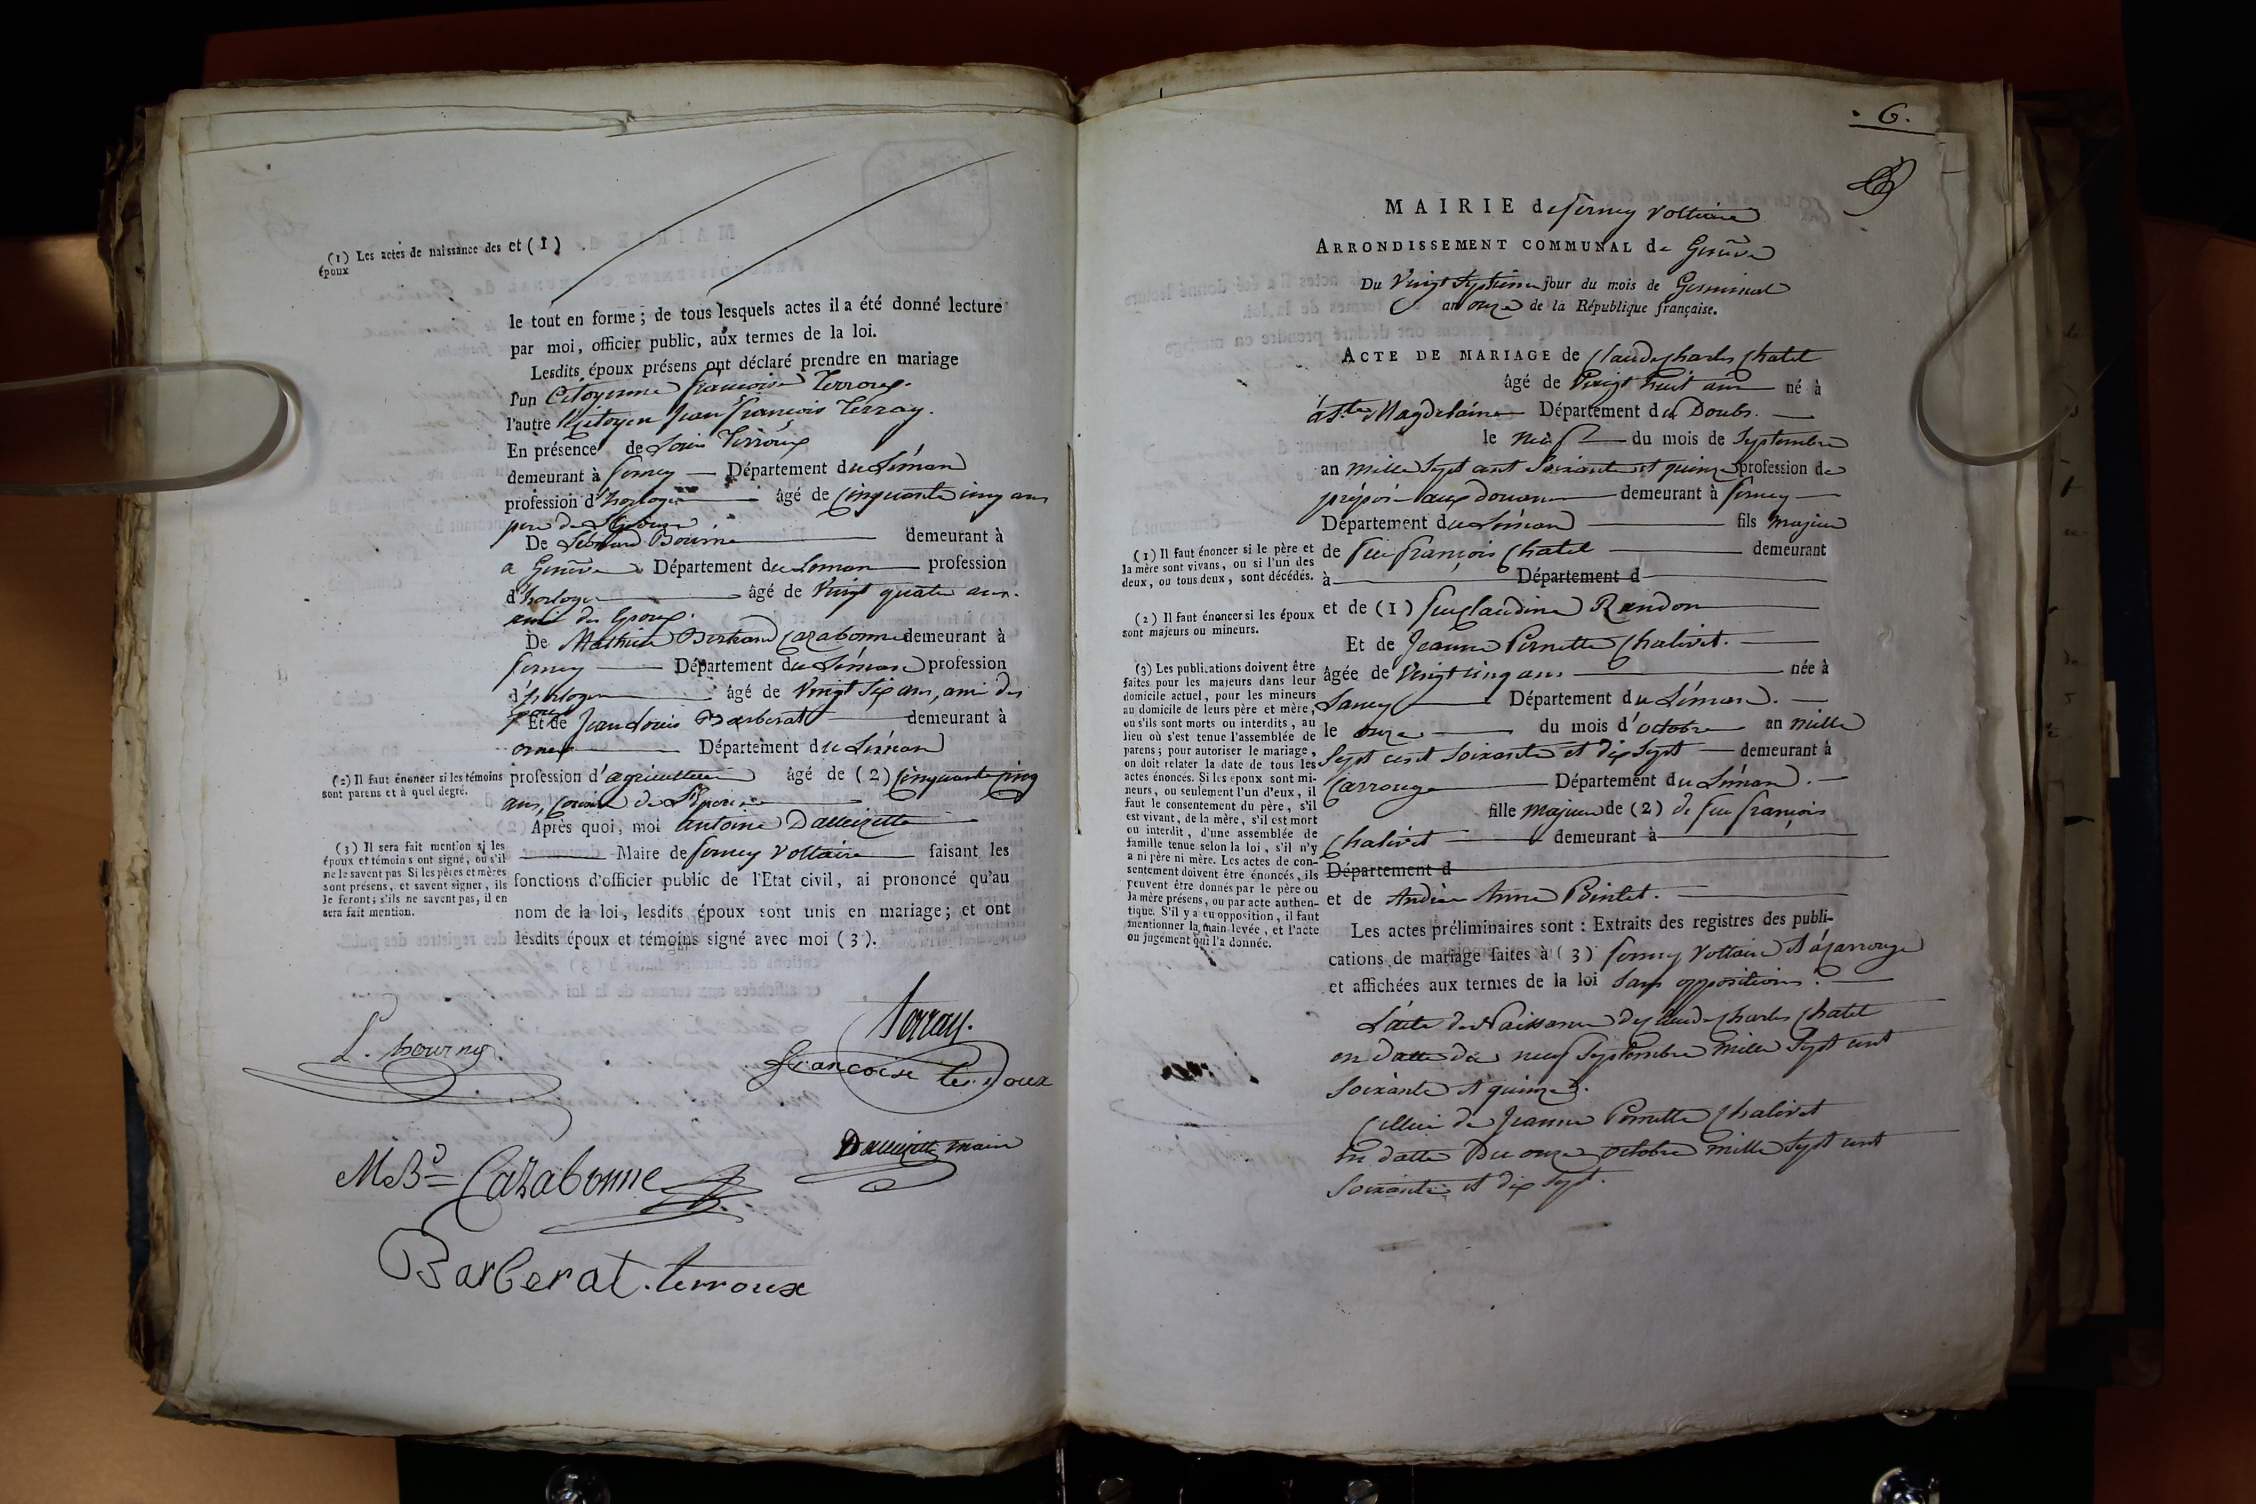 (1) Les actes de naissance des
époux
et (1)
le tout en forme ; de tous lesquels actes il a été donné lecture
par moi, officier public, aux termes de la loi.
Lesdits époux présens ont déclaré prendre en mariage
l'un Citoyenne françoise Terroux.
l'autre le Citoyen Jean françois Terray.
En présence de Louis Terroux
demeurant à ferney Département du Léman
profession d'horloger âgé de Cinquante cinq ans
pere de L'Epouse
De Léonard Bourne demeurant à
a Genève Département du Léman profession
d'horloger âgé de Vingt quatre ans.
ami des Epoux.
De Mathieu Bertrand Cazabonne demeurant à
ferney Département du Léman profession
d'horloger âgé de Vingt six ans, ami des
Epoux
Et de Jean Louis Barberat demeurant à
ornex Département du Léman
profession d'agriculteur âgé de (2) Cinquante cinq
ans, Cousin de L'Epouse
(2) Il faut énoncer si les témoins
sont parens et à quel degré.
Après quoi, moi antoine Dalleizette
Maire de ferney Voltaire faisant les
fonctions d'officier public de l'Etat civil, ai prononcé qu'au
nom de la loi, lesdits époux sont unis en mariage ; et ont
lesdits époux et témoins signé avec moi (3).
(3) Il sera fait mention si les
époux et témoins ont signé, ou s'il
ne le savent pas. Si les pères et mères
sont présens, et savent signer, ils
le feront ; s'ils ne savent pas, il en
sera fait mention.
Terray.
L. bourne.
francoise terroux
Dalleizette maire
M Bd Cazabonne
Barberat. terroux
. 6 .
MAIRIE de ferney Voltaire
ARRONDISSEMENT COMMUNAL de Genève
Du Vingt Septième jour du mois de Germinal
an onze de la République française.
ACTE DE MARIAGE de Claude Charles Chatel
âgé de Vingt huit ans né à
à Ste Magdelaine Département du Doubs.
le neuf du mois de Septembre
an mille Sept cent Soixante et quinze profession de
préposé aux douanes demeurant à ferney
Département du Léman fils majeur
de feu françois Chatel demeurant
à Département d
et de (1) feu Claudine Rendon
Et de Jeanne Pernette Chalivet.
âgée de Vingt cinq ans née à
Lancy Département du Léman.
le onze du mois d'octobre an mille
Sept cent Soixante et dix Sept demeurant à
Carrouge Département du Léman.
fille majeure de (2) de feu françois
Chalivet demeurant à
Département d
et de Andrée Anne Pointet.
Les actes préliminaires sont : Extraits des registres des publi-
cations de mariage faites à (3) ferney Voltaire et à Carrouge
et affichées aux termes de la loi Sans oppositions.
L'acte de Naissance de Claude Charles Chatel
en datte du neuf Septembre mille Sept cent
Soixante et quinze.
Celui de Jeanne Pernette Chalivet
En datte Du onze octobre mille Sept cent
Soixante et dix Sept.
(1) Il faut énoncer si le père et
la mère sont vivans, ou si l'un des
deux, ou tous deux, sont décédés.
(2) Il faut énoncer si les époux
sont majeurs ou mineurs.
(3) Les publications doivent être
faites pour les majeurs dans leur
domicile actuel, pour les mineurs
au domicile de leurs père et mère,
ou s'ils sont morts ou interdits, au
lieu où s'est tenue l'assemblée de
parens ; pour autoriser le mariage,
on doit relater la date de tous les
actes énoncés. Si les époux sont mi-
neurs, ou seulement l'un d'eux, il
faut le consentement du père, s'il
est vivant, de la mère, s'il est mort
ou interdit, d'une assemblée de
famille tenue selon la loi, s'il n'y
a ni père ni mère. Les actes de con-
sentement doivent être énoncés, ils
peuvent être donnés par le père ou
la mère présens, ou par acte authen-
tique. S'il y a eu opposition, il faut
mentionner la main levée, et l'acte
ou jugement qui l'a donnée.